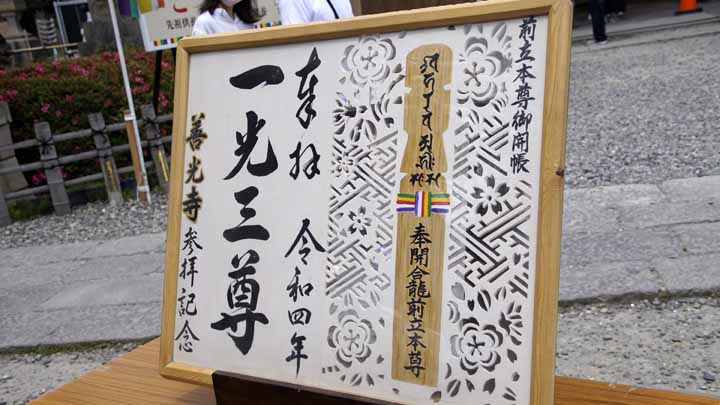 前立本尊御開帳
奉開合龍前立本尊
奉拝 令和四年
一光三尊
善光寺参拝記念
先祖供